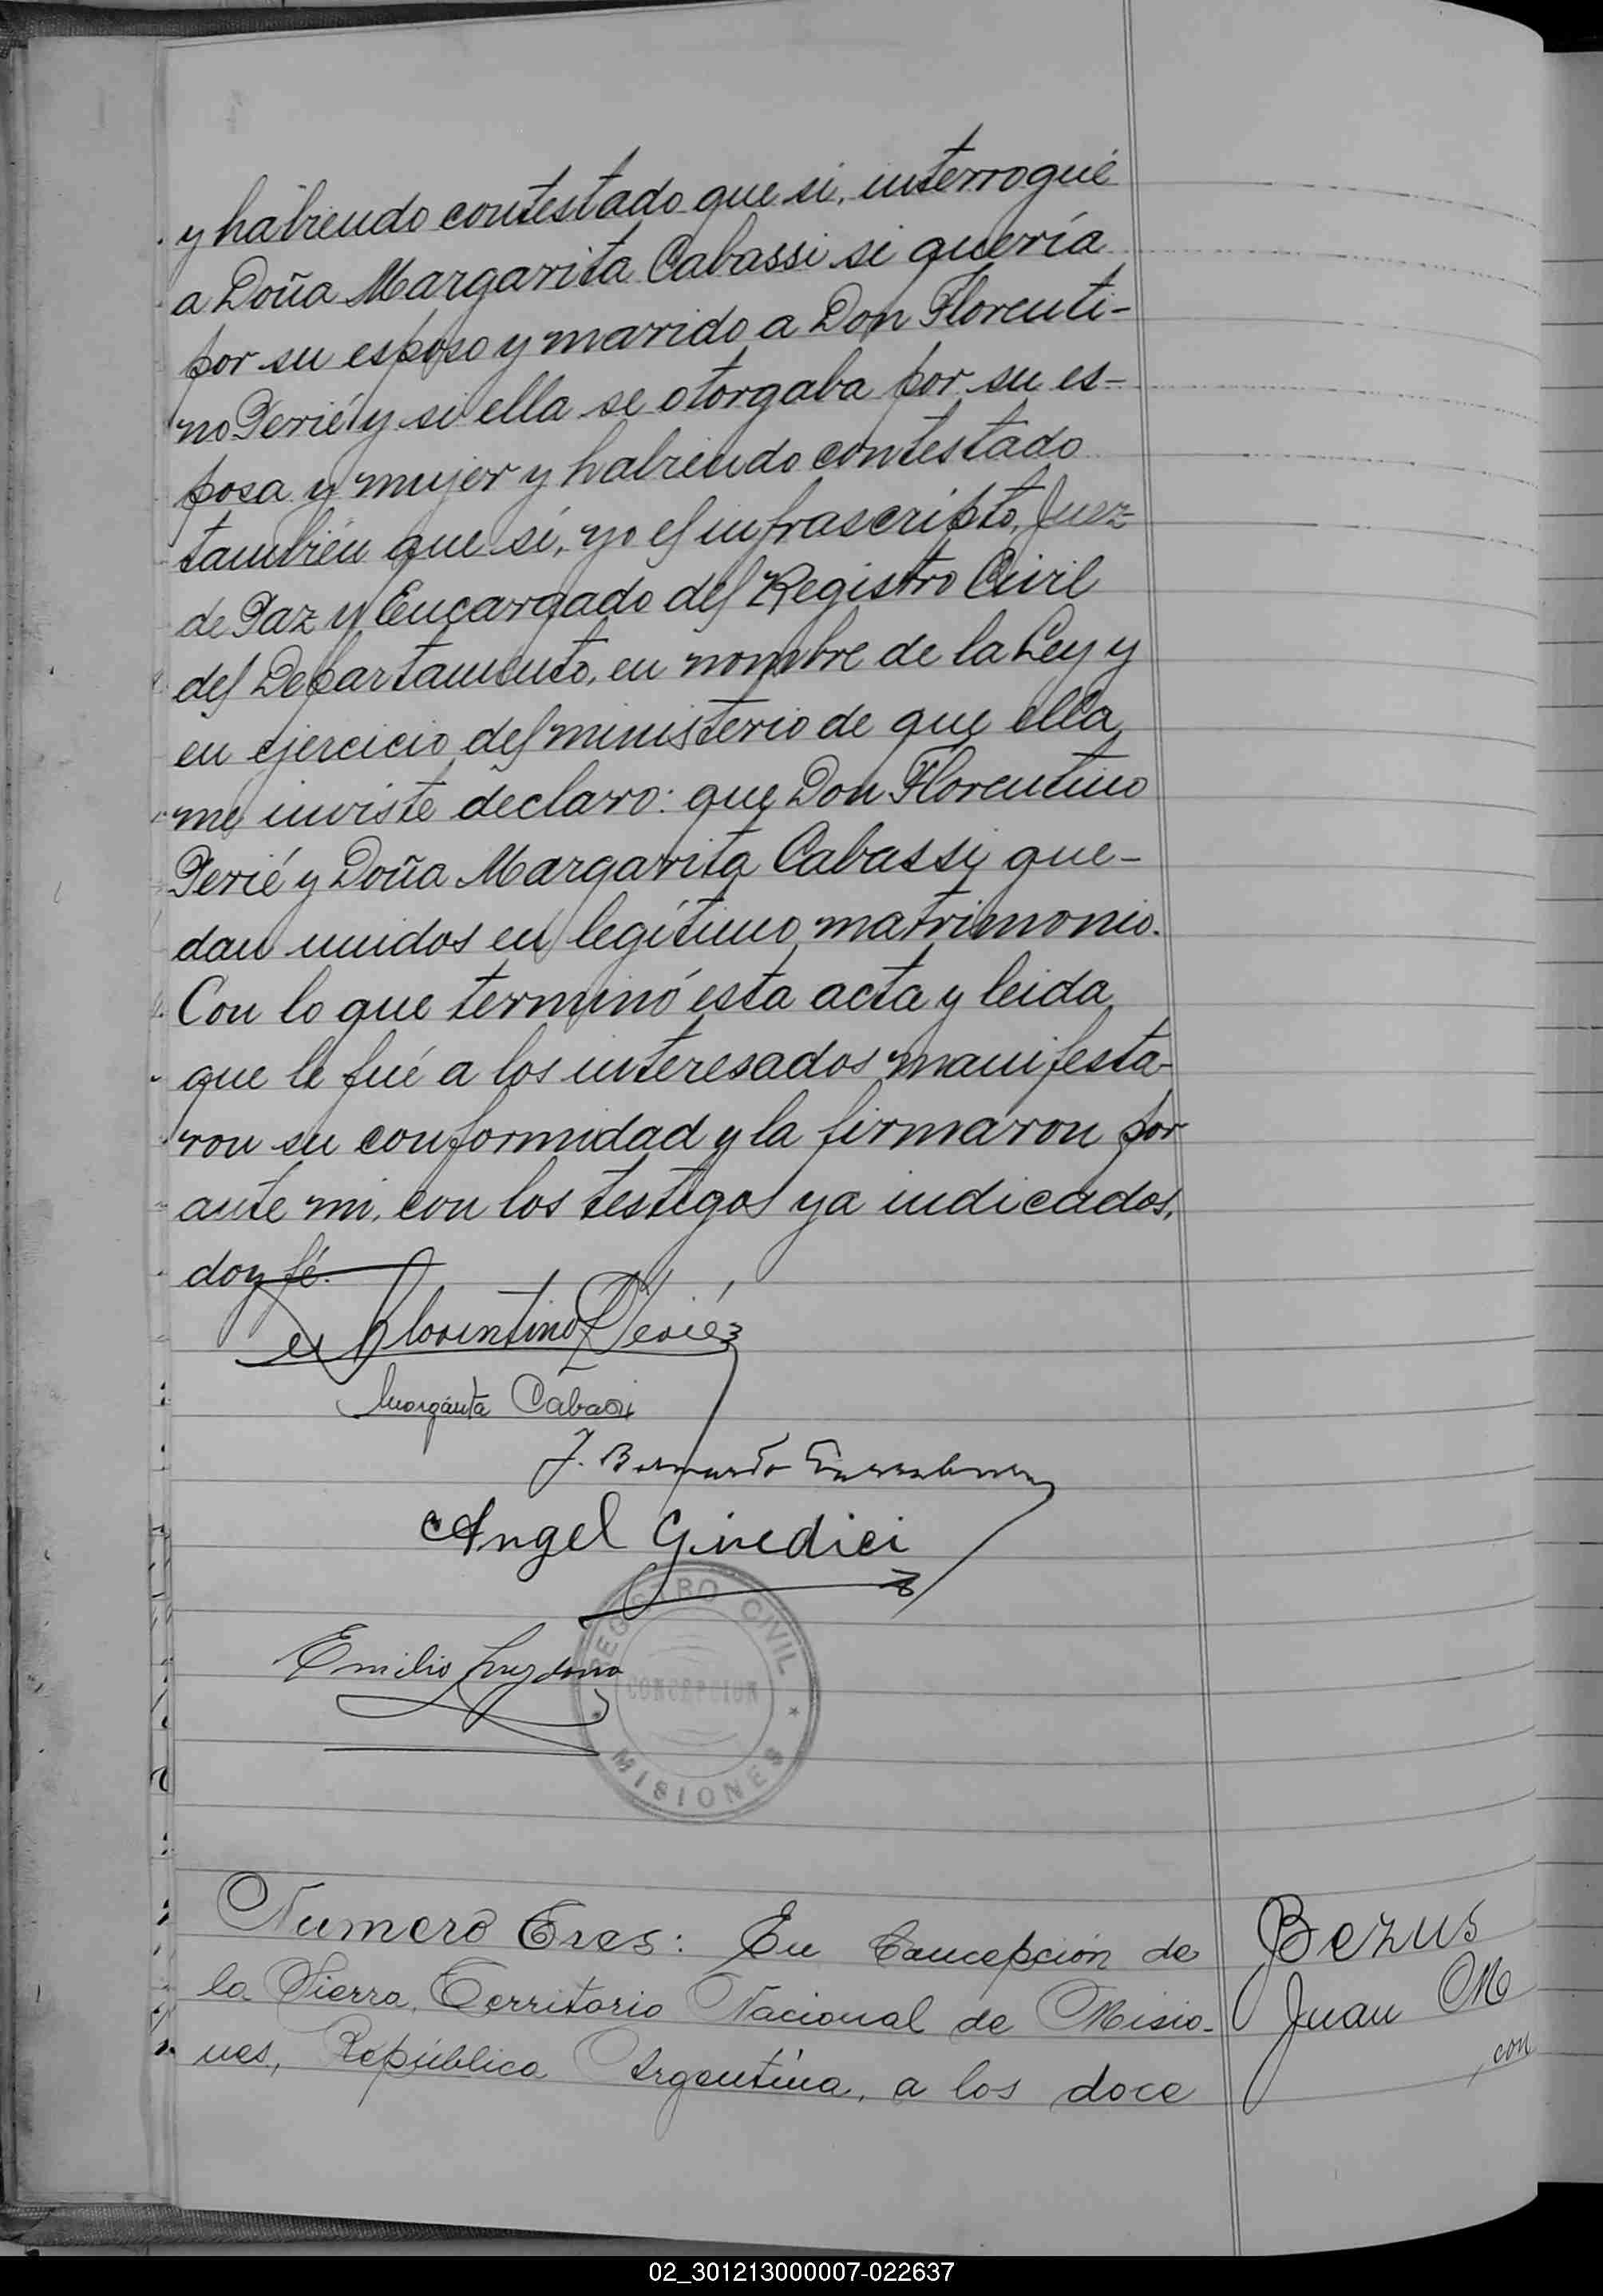 y habiendo contestado que si, interrogué
a Doña Margarita Cabassi si quería
por su esposo y marido a Don Florenti-
no Perié y si ella se otorgaba por su es-
posa y mujer y habiendo contestado
también que sí, yo el infrascripto, Juez
de Paz y Encargado del Registro Civil
del Departamento, en nombre de la Ley y
en ejercicio del ministerio de que ella
me inviste declaro: que Don Florentino
Perié y Doña Margarita Cabassi que-
dan unidos en legítimo matrimonio.
Con lo que terminó esta acta y leida
que le fué a los interesados manifesta-
ron su conformidad y la firmaron por
ante mi, con los testigos ya indicados,
doy fé.
Florentino Perié
Margarita Cabassi
J. Bernardo
Angel Giudici
Emilio
REGISTRO CIVIL
CONCEPCION
MISIONES
Numero Tres: En Concepción de
la Sierra, Territorio Nacional de Misio-
nes, República Argentina, a los doce
Bezus
Juan M
con
02_301213000007-022637